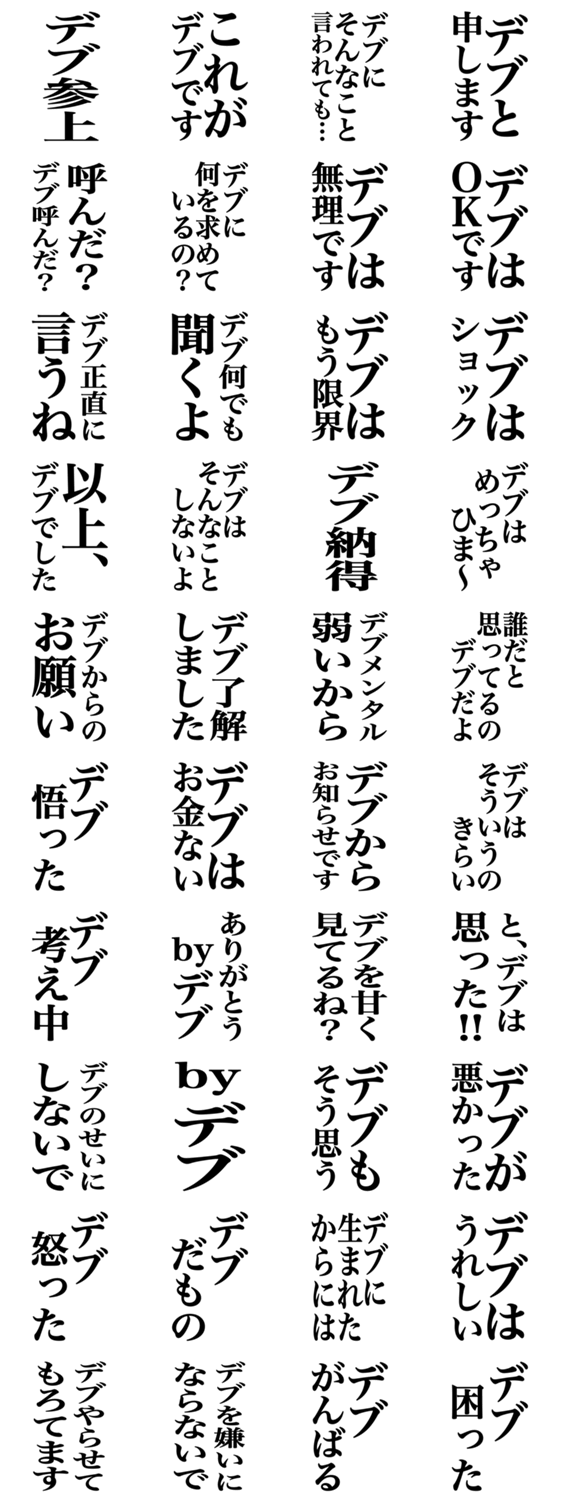 デブと
申します
デブに
そんなこと
言われても…
これが
デブです
デブ参上
デブは
OKです
デブは
無理です
デブに
何を求めて
いるの?
呼んだ?
デブ呼んだ?
デブは
ショック
デブは
もう限界
デブ何でも
聞くよ
デブ正直に
言うね
デブは
めっちゃ
ひま〜
デブ納得
デブは
そんなこと
しないよ
以上、
デブでした
誰だと
思ってるの
デブだよ
デブメンタル
弱いから
デブ了解
しました
デブからの
お願い
デブは
そういうの
きらい
デブから
お知らせです
デブは
お金ない
デブ
悟った
と、デブは
思った!!
デブを甘く
見てるね?
ありがとう
byデブ
デブ
考え中
デブが
悪かった
デブも
そう思う
by
デブ
デブのせいに
しないで
デブは
うれしい
デブに
生まれた
からには
デブ
だもの
デブ
怒った
デブ
困った
デブ
がんばる
デブを嫌いに
ならないで
デブやらせて
もろてます